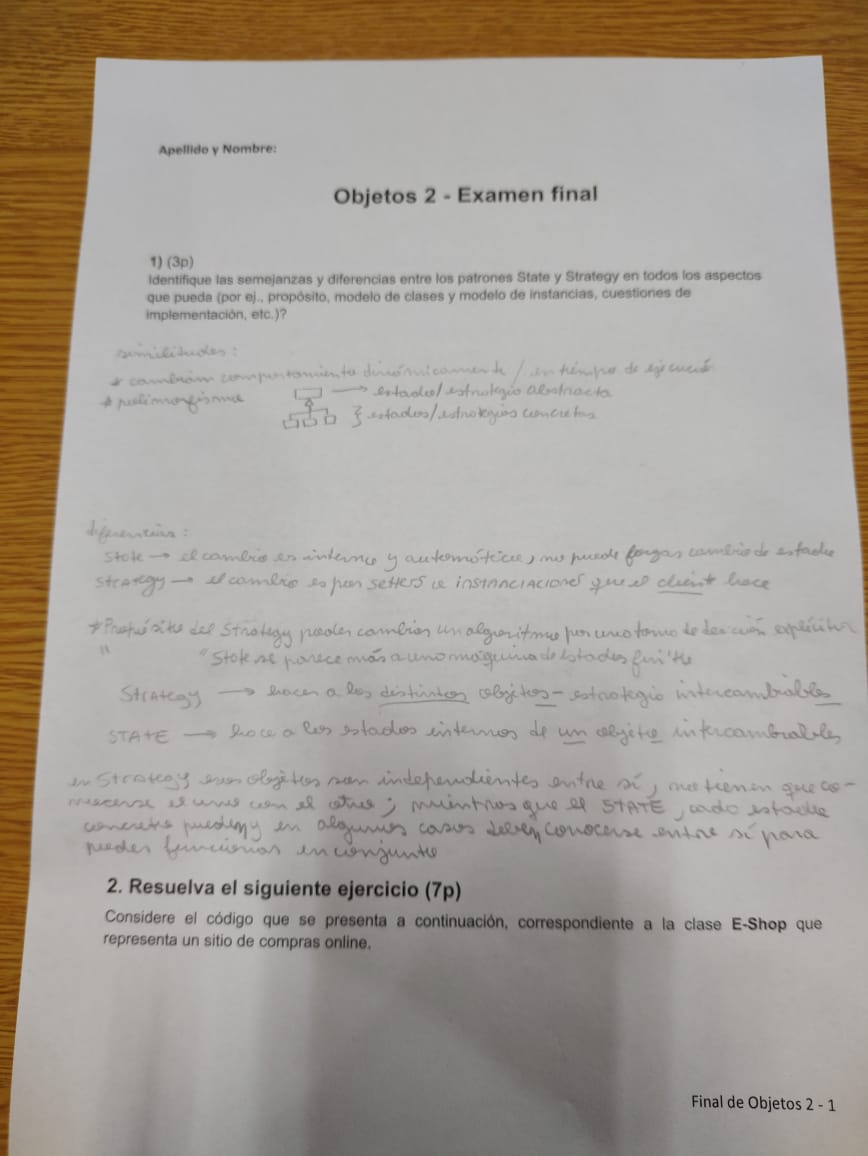 Apellido y Nombre:
Objetos 2 - Examen final
1) (3p)
Identifique las semejanzas y diferencias entre los patrones State y Strategy en todos los aspectos
que pueda (por ej., propósito, modelo de clases y modelo de instancias, cuestiones de
implementación, etc.)?
similitudes:
* cambiam comportamiento dinámicamente / en tiempo de ejecución
* polimorfismo
→ estado/estrategia abstracta
} estados/estrategias concretas
diferencias:
State → el cambio es interno y automático, no puede forzar cambio de estado
STRATEGY → el cambio es por setters o instanciaciones que el cliente hace
* Propósito del Strategy poder cambiar un algoritmo por una toma de decisión explícita
" " State se parece más a una máquina de estados finita
STRATEGY → hacer a los distintos objetos-estrategia intercambiables
STATE → hace a los estados internos de un objeto intercambiables
en STRATEGY esos objetos son independientes entre sí, no tienen que co-
nocerse el uno con el otro; mientras que el STATE, cada estado
concreto pueden y en algunos casos deben conocerse entre sí para
poder funcionar en conjunto
2. Resuelva el siguiente ejercicio (7p)
Considere el código que se presenta a continuación, correspondiente a la clase E-Shop que
representa un sitio de compras online.
Final de Objetos 2 - 1